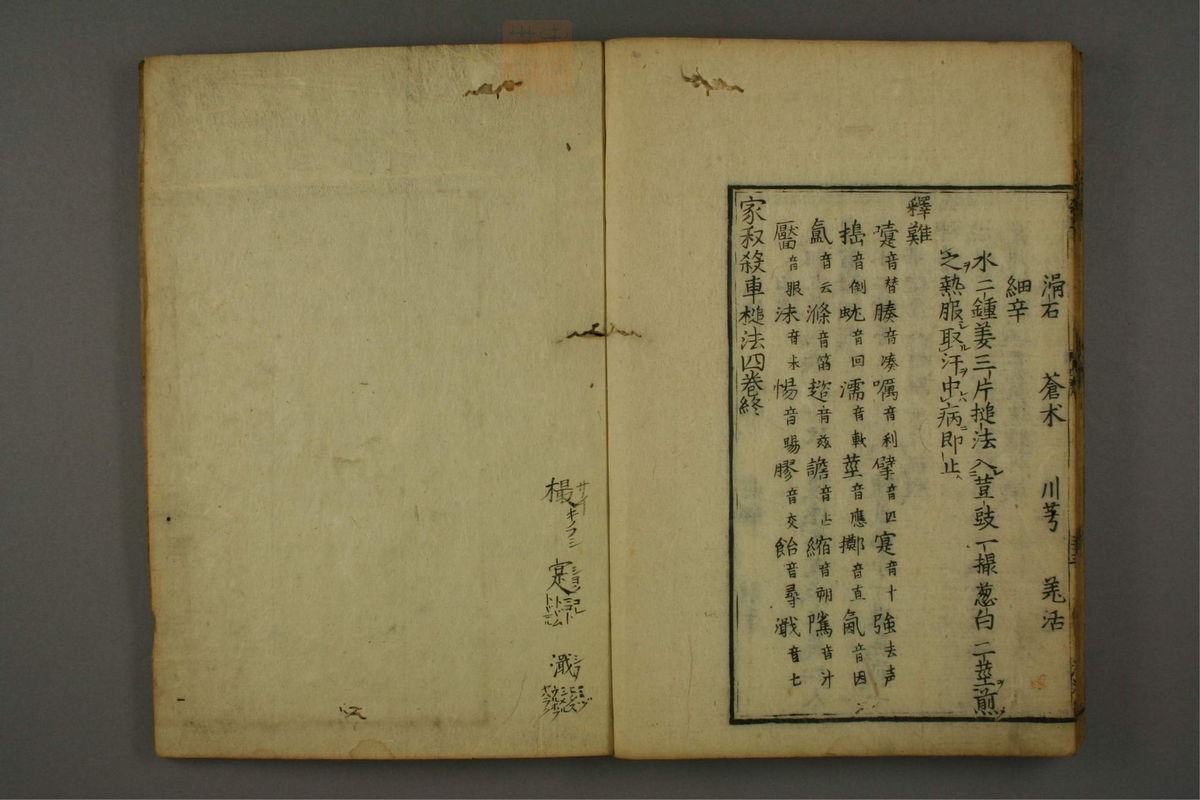 滑石 蒼朮 川芎 羌活
細辛
水二鍾姜三片搥法入荳豉一撮葱白二莖煎
之熱服取汗中病即止
釋難
嚏音替 腠音凑 囑音利 擘音匹 寔音十 強去声
搗音倒 蚘音回 濡音軟 莖音應 擲音直 氤音因
氲音云 滌音笛 趑音玆 譫音占 縮音朔 隲音汁
靨音眼 沫音末 惕音賜 膠音交 飴音尋 濈音七
家叔殺車槌法四卷終
樶 キノフシ
寔 コレ コト
濈